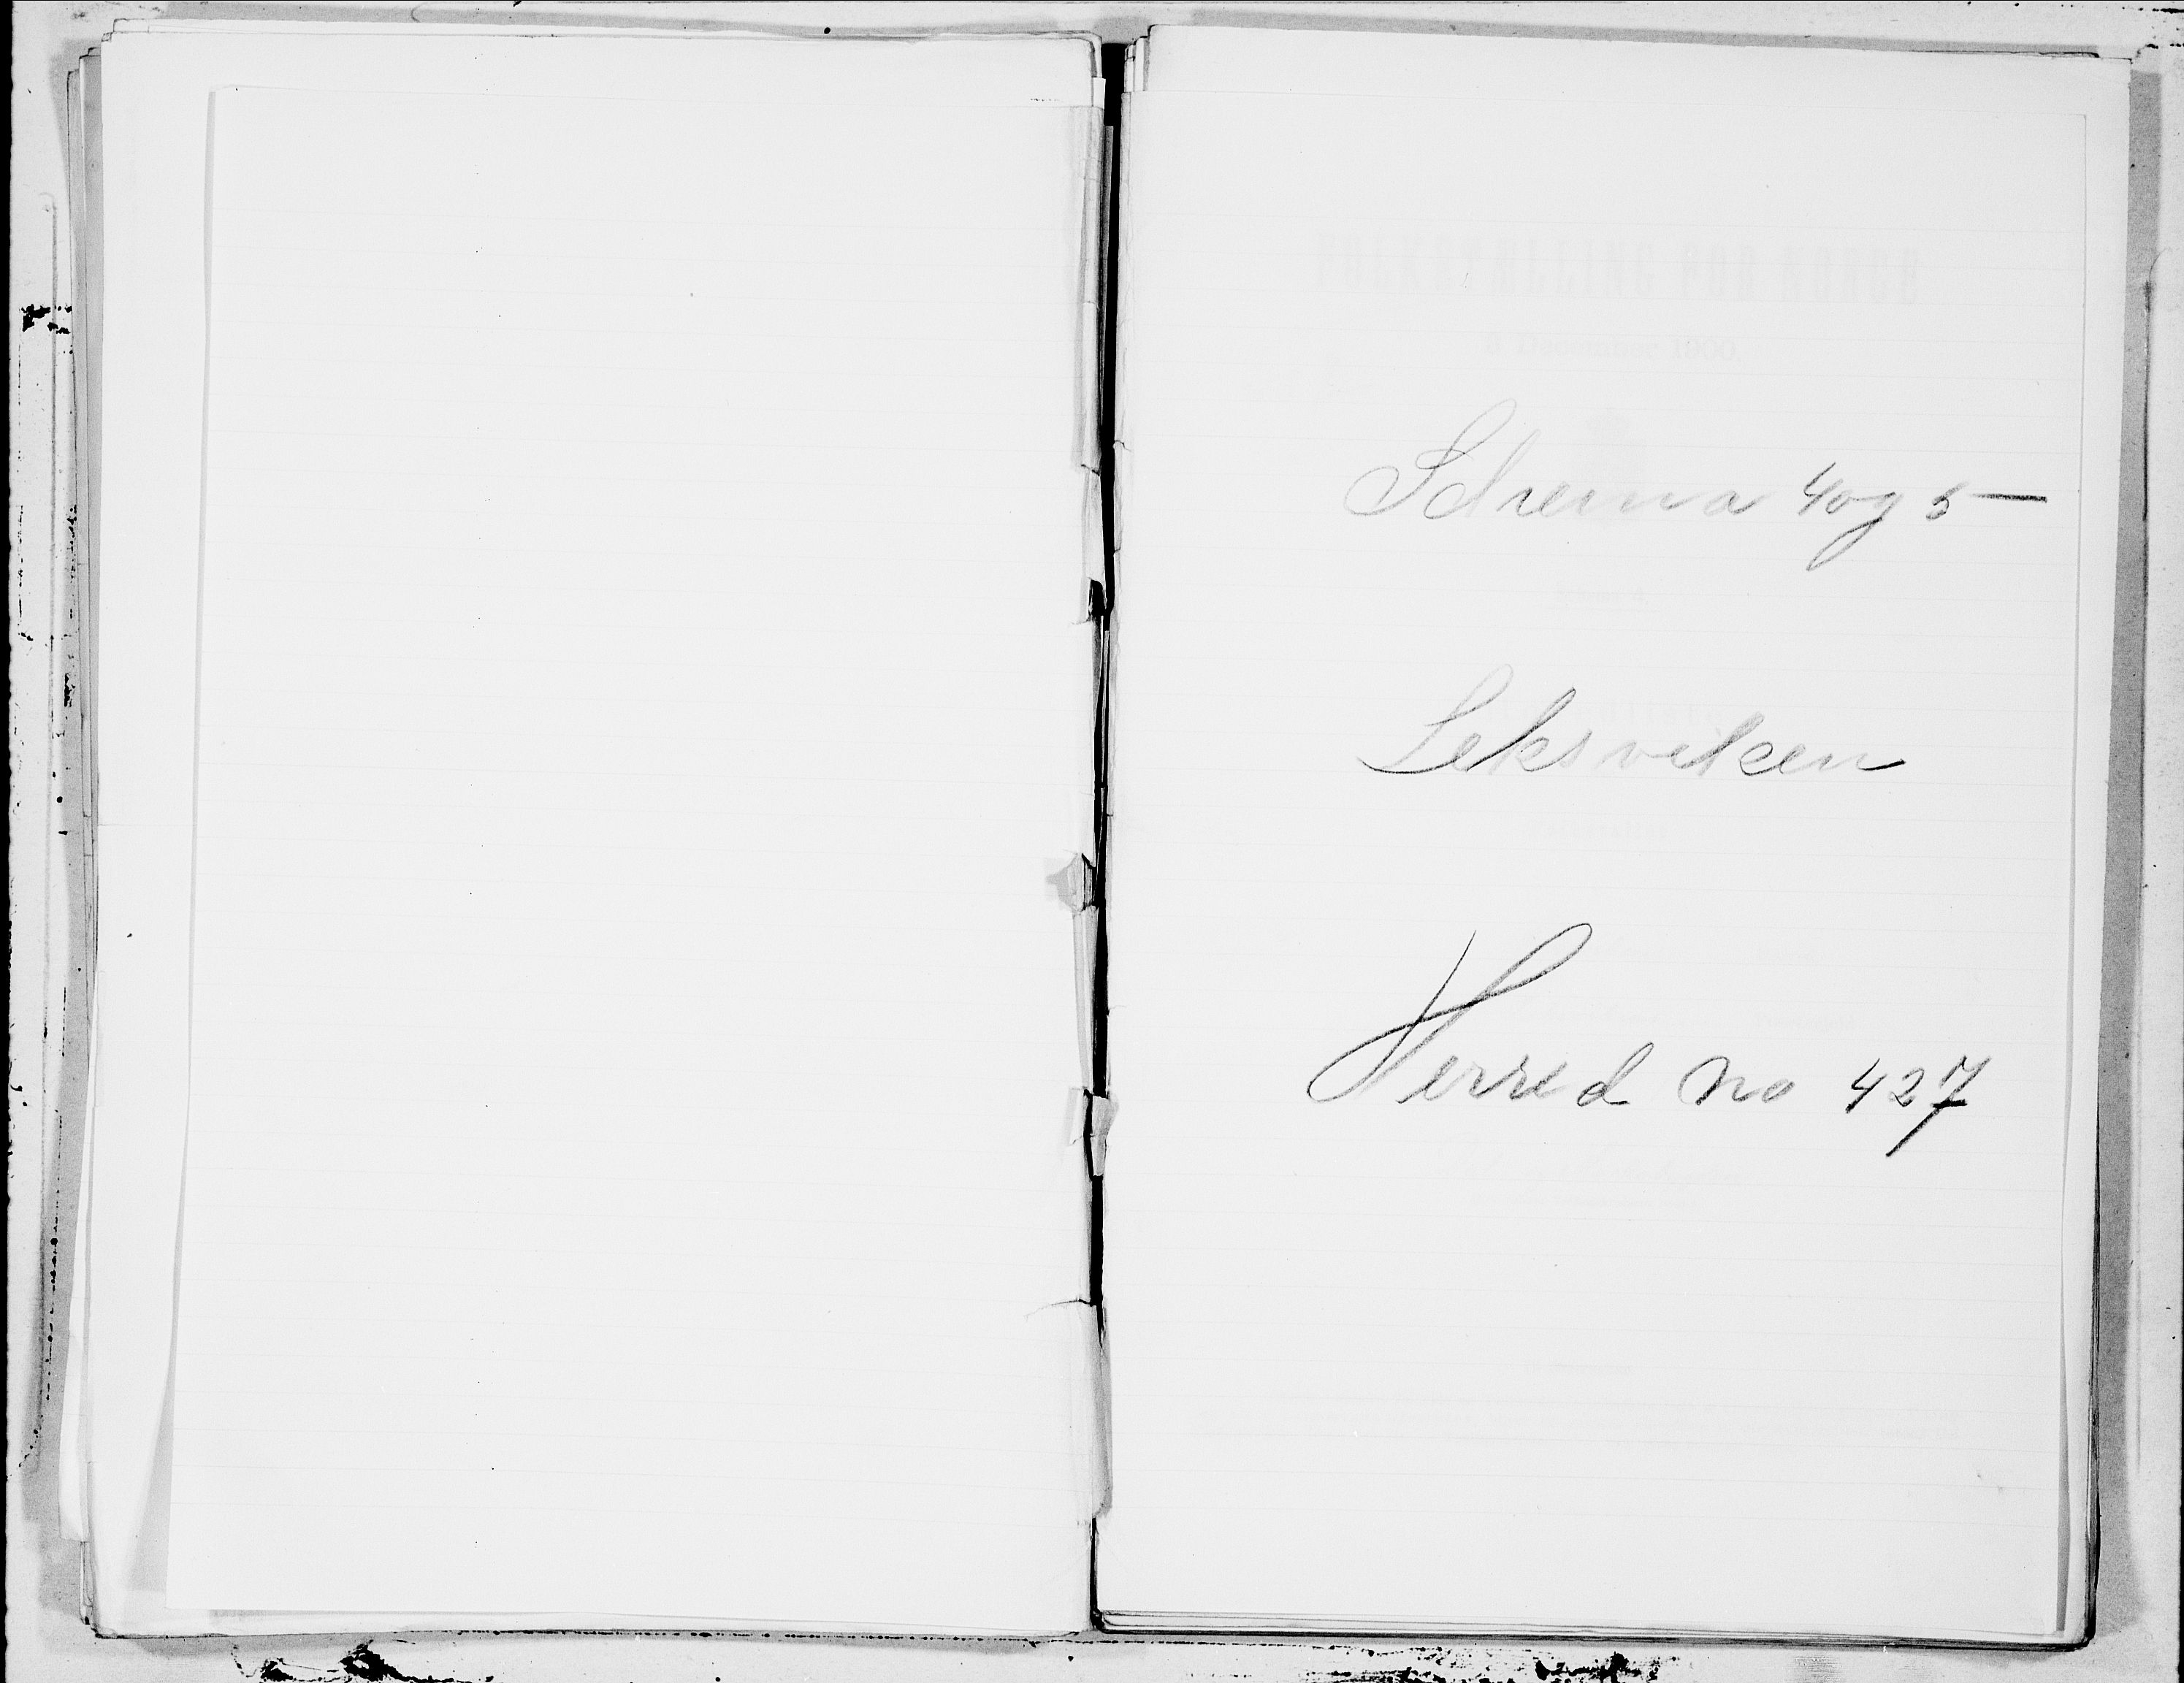 FOLKETÆLLING FOR NORGE
3 December 1900.
Schema 4 og 5
Leksviken
Herred no 427